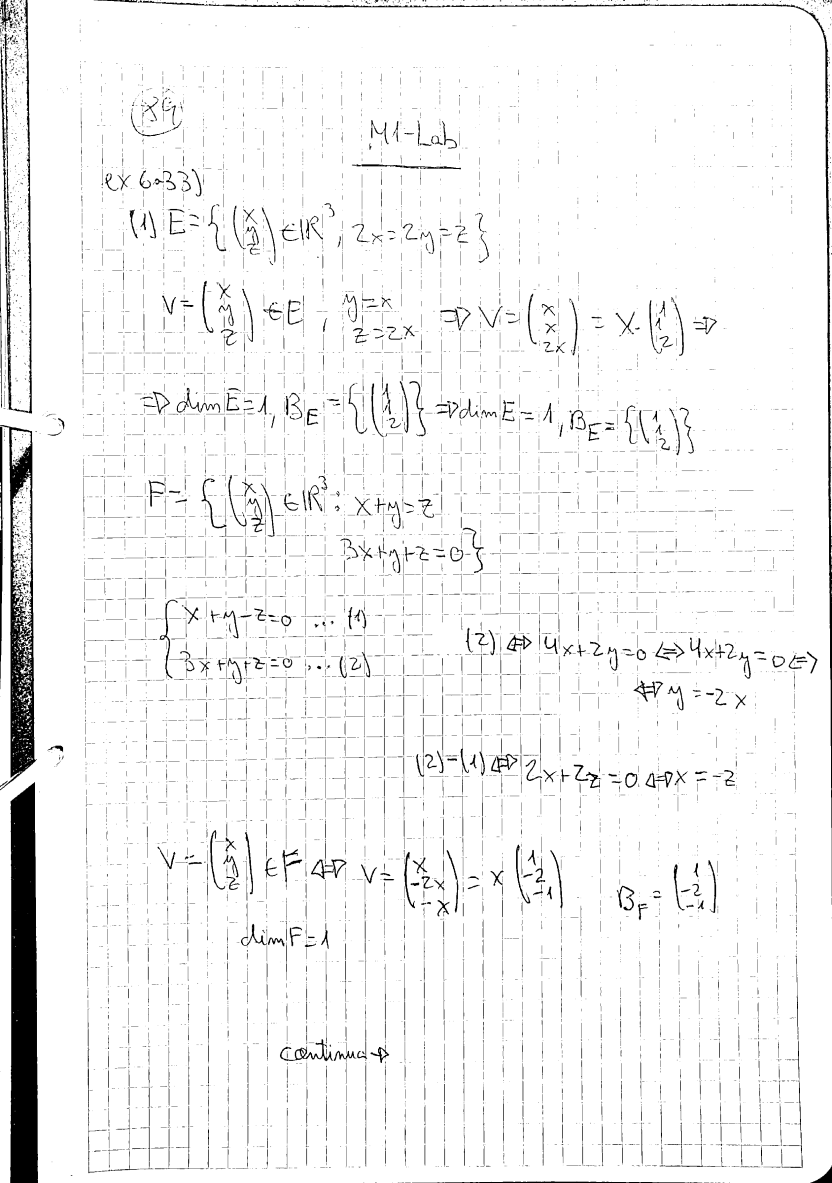 M1-Lab
ex 6.33)
(1) E = { (x y z) ∈ ℝ³, 2x = 2y = z }
V = (x y z) ∈ E, y = x z = 2x ⇒ V = (x x 2x) = x · (1 1 2) ⇒
⇒ dim E = 1, B_E = { (1 1 2) } ⇒ dim E = 1, B_E = { (1 1 2) }
F = { (x y z) ∈ ℝ³ : x + y = z
3x + y + z = 0 }
{ x + y − z = 0 ... (1)
3x + y + z = 0 ... (2)
(2) ⇔ 4x + 2y = 0 ⇔ 4x + 2y = 0 ⇔
⇔ y = −2x
(2) − (1) ⇔ 2x + 2z = 0 ⇔ x = −z
V = (x y z) ∈ F ⇔ V = (x −2x −x) = x (1 −2 −1) B_F = (1 −2 −1)
dim F = 1
continua →